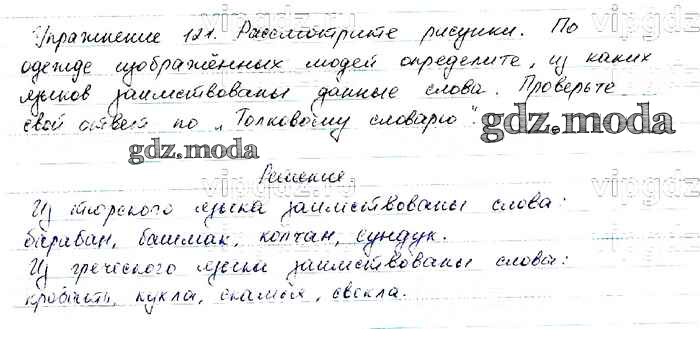 Упражнение 121. Рассмотрите рисунки. По
одежде изображённых людей определите, из каких
языков заимствованы данные слова. Проверьте
свой ответ по „Толковому словарю".
gdz.moda
gdz.moda
Решение
Из тюрского языка заимствованы слова:
барабан, башмак, колчан, сундук.
Из греческого языка заимствованы слова:
кровать, кукла, скамья, свекла.
vipgdz.ru
vipgdz
vipgdz.ru
vipgdz